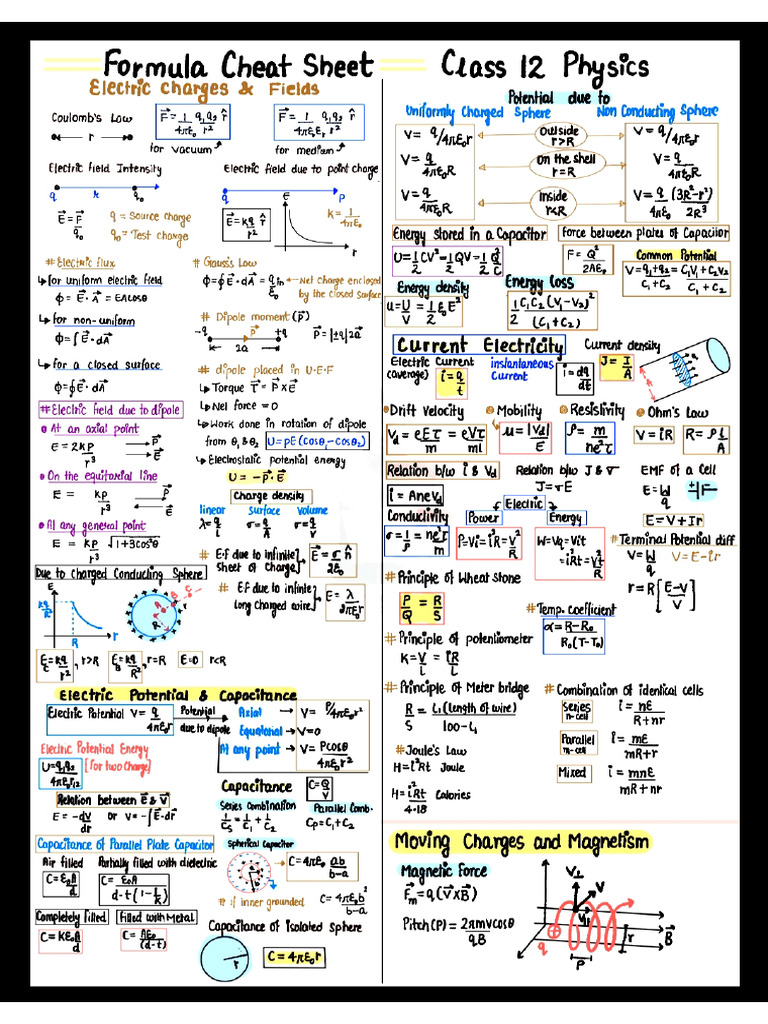 Formula Cheat Sheet
Electric Charges & Fields
Coulomb's Law
r
F⃗ = 1/4πε₀ q₁q₂/r² r̂
for vacuum
F⃗ = 1/4πε₀εᵣ q₁q₂/r² r̂
for medium
Electric field Intensity
q r q₀
E⃗ = F⃗/q₀
q = Source charge
q₀ = Test charge
Electric field due to point charge
q P
E⃗ = kq/r² r̂
E
r
k = 1/4πε₀
# Electric flux
↳ for uniform electric field
ϕ = E⃗.A⃗ = EA cosθ
↳ for non-uniform
ϕ = ∫E⃗.dA⃗
↳ for a closed surface
ϕ = ∮E⃗.dA⃗
# Gauss's Law
ϕ = ∮E⃗.dA⃗ = qin/ε₀ ← Net charge enclosed
by the closed Surface
# Dipole moment (P⃗)
-q P⃗ +q
2a
P⃗ = |±q|2a⃗
# dipole placed in U.E.F
↳ Torque T⃗ = P⃗ x E⃗
↳ Net force = 0
↳ Work done in rotation of dipole
from θ₁ & θ₂ U = pE(cosθ₁ - cosθ₂)
↳ Electrostatic potential energy
U = -P⃗.E⃗
#Electric field due to dipole
At an axial point
E = 2kp/r³
P⃗
E⃗
On the equitorial line
E = kp/r³
P⃗
E⃗
At any general point
E = kp/r³ √1+3cos²θ
Charge density
linear surface volume
λ = q/L σ = q/A σ = q/V
# E.f due to infinite
sheet of charge
E⃗ = σ/2ε₀ n̂
# E.f due to infinite
long charged wire
E = λ/2πε₀r
Due to Charged Conducting Sphere
E
kq/R²
R r
R B A C
E = kq/r², r>R
E = kq/R², r=R
E=0 r<R
Electric Potential & Capacitance
Electric Potential V = q/4πε₀r
Potential
due to dipole
Axial → V = P/4πε₀r²
Equatorial → V=0
At any point → V = Pcosθ/4πε₀r²
Electric Potential Energy
U = q₁q₂/4πε₀r₁₂ [for two charge]
Relation between E⃗ & V⃗
E = -dV/dr or V = -∫E⃗.dr⃗
Capacitance C = Q/V
Series Combination
1/Cs = 1/C₁ + 1/C₂
Parallel Comb.
Cp = C₁+C₂
Capacitance of Parallel Plate Capacitor
Air filled
C = ε₀A/d
Partially filled with dielectric
C = ε₀A/d-t(1-1/k)
Completely filled
C = Kε₀A/d
filled with Metal
C = Aε₀/(d-t)
Spherical Capacitor
C = 4πε₀ ab/b-a
# if inner grounded
C = 4πε₀ b²/b-a
Capacitance of isolated Sphere
r
C = 4πε₀r
Class 12 Physics
Potential due to
Uniformly Charged Sphere Non Conducting Sphere
V = q/4πε₀r Outside r>R V = q/4πε₀r
V = q/4πε₀R On the shell r=R V = q/4πε₀R
V = q/4πε₀R Inside r<R V = q/4πε₀ (3R²-r²)/2R³
Energy stored in a Capacitor
U = 1/2 CV² = 1/2 QV = 1/2 Q²/C
Force between plates of Capacitor
F = Q²/2Aε₀
Common Potential
V = q₁+q₂/C₁+C₂ = C₁V₁+C₂V₂/C₁+C₂
Energy density
u = U/V = 1/2 ε₀E²
Energy loss
1/2 C₁C₂(V₁-V₂)²/(C₁+C₂)
Current Electricity
Electric Current
(average) i = q/t
instantaneous
Current i = dq/dt
Current density
J = I/A
Drift Velocity
Vd = eEτ/m = eVτ/ml
Mobility
μ = |Vd|/E
Resistivity
ρ = m/ne²τ
Ohm's Law
V = iR R = ρL/A
Relation b/w i & Vd
i = AneVd
Relation b/w J & σ
J = σE
EMF of a Cell
E = W/q
E = V+Ir
Conductivity
σ = 1/ρ = ne²τ/m
Electric
Power
P = Vi = i²R = V²/R
Energy
W = Vq = Vit
= i²Rt = V²t/R
# Terminal Potential diff
V = W/q V = E-ir
r = R[E-V/V]
# Principle of Wheat stone
P/Q = R/S
# Temp. coefficient
α = R-R₀/R₀(T-T₀)
# Principle of potentiometer
K = V/L = iR/L
# Principle of Meter bridge
R/S = L₁(length of wire)/100-L₁
# Joule's Law
H = i²Rt Joule
H = i²Rt/4.18 Calories
# Combination of identical cells
Series
n-cell
i = nE/R+nr
Parallel
m-cell
i = mE/mR+r
Mixed
i = mnE/mR+nr
Moving Charges and Magnetism
Magnetic Force
F⃗m = q(V⃗×B⃗)
Pitch(P) = 2πmvcosθ/qB
V⊥ V
V∥
q
r
B⃗
P